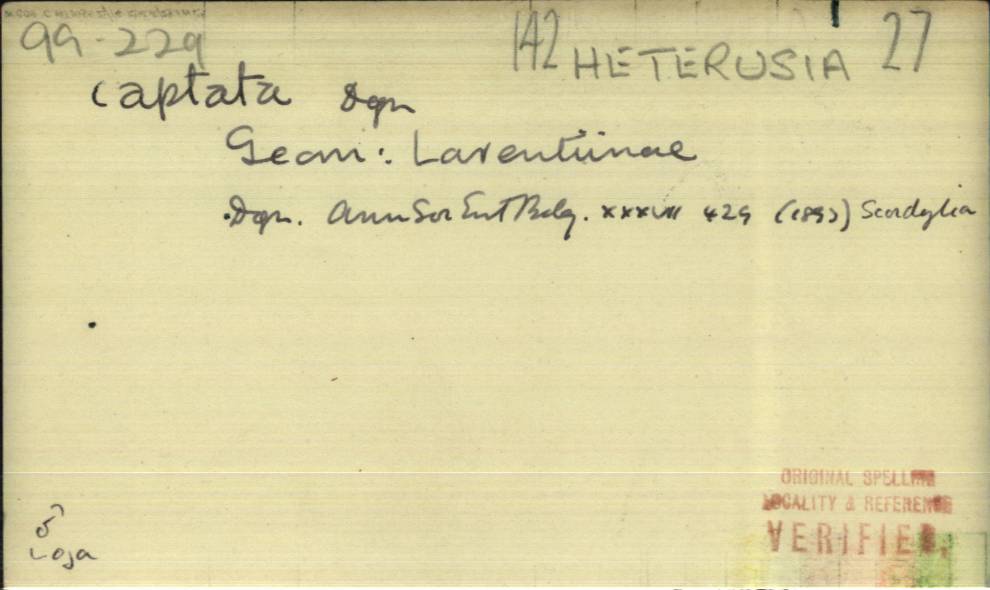 99-229 142 HETERUSIA 27
captata Dgn
Geom: Larentiinae
Dgn. Ann Soc Ent Belg. XXXVII 429 (1893) Scordylia
ORIGINAL SPELLING
LOCALITY & REFERENCE
VERIFIED.
♂
Loja